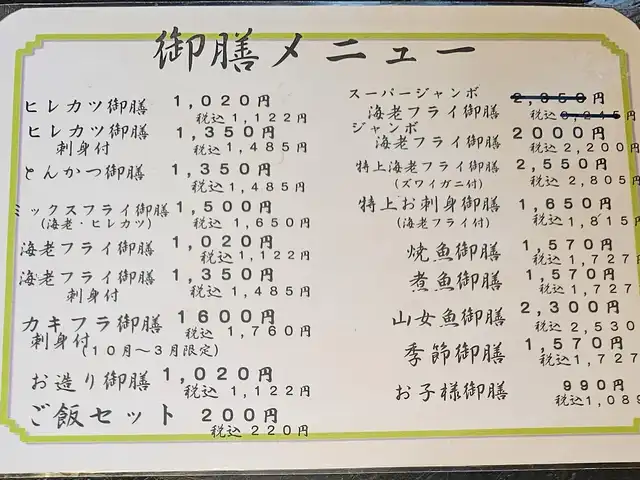 御膳メニュー
ヒレカツ御膳 1,020円
税込 1,122円
ヒレカツ御膳 1,350円
刺身付 税込 1,485円
とんかつ御膳 1,350円
税込 1,485円
ミックスフライ御膳 1,500円
(海老・ヒレカツ) 税込 1,650円
海老フライ御膳 1,020円
税込 1,122円
海老フライ御膳 1,350円
刺身付 税込 1,485円
カキフラ御膳 1600円
刺身付 税込 1,760円
(10月～3月限定)
お造り御膳 1,020円
税込 1,122円
ご飯セット 200円
税込 220円
スーパージャンボ
海老フライ御膳 円
税込 円
ジャンボ
海老フライ御膳 2000円
税込 2,200円
特上海老フライ御膳 2,550円
(ズワイガニ付) 税込 2,805円
特上お刺身御膳 1,650円
(海老フライ付) 税込 1,815円
焼魚御膳 1,570円
税込 1,727
煮魚御膳 1,570円
税込 1,727
山女魚御膳 2,300円
税込 2,530
季節御膳 1,570円
税込 1,727
お子様御膳 990円
税込 1,089